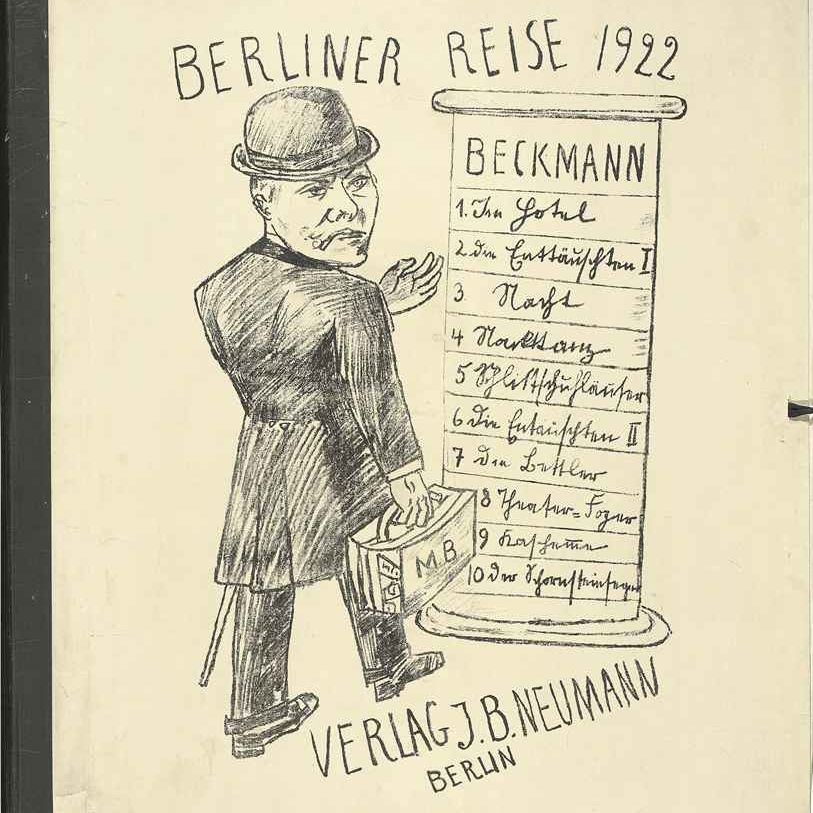 BERLINER REISE 1922
BECKMANN
1. Im Hotel
2 die Enttäuschten I
3 Nacht
4 Nackttanz
5 Schlittschuhläufer
6 die Entäuschten II
7 die Bettler
8 Theater=Foyer
9 Kaschem̅e
10 der Schornsteinfeger
M.B.
VERLAG J.B. NEUMANN
BERLIN